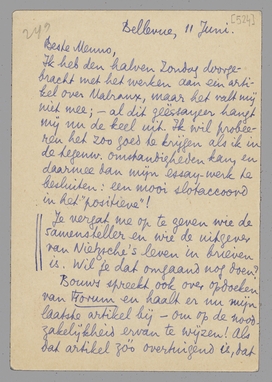 [524]
249
Bellevue, 11 Juni.
Beste Menno,
Ik heb den halven Zondag doorge-
bracht met het werken aan een arti-
kel over Malraux, maar het valt mij
niet mee; — al dit geëssayeer hangt
mij nu de keel uit. Ik wil probee-
ren het zoo goed te krijgen als ik in
de tegenw. omstandigheden kan, en
daarmee dan mijn essay-werk te
besluiten: een mooi slotaccoord
in het "positieve"!
Je vergat me op te geven wie de
samensteller en wie de uitgever
van Nietzsche's leven in brieven
is. Wil je dat omgaand nog doen?
Bouws spreekt ook over opdoeken
van Forum en haalt er nu mijn
laatste artikel bij — om op de nood-
zakelijkheid ervan te wijzen! Als
dat artikel zóó overtuigend is, dat